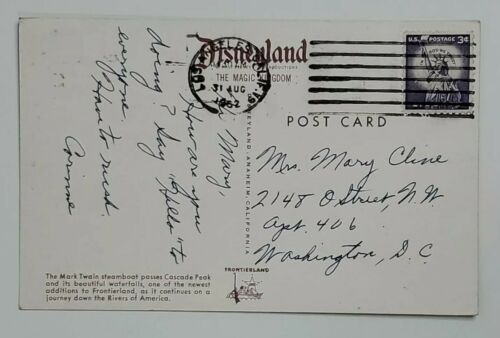 Disneyland
THE MAGIC KINGDOM
LOS ANGELES, CALIF.
31 AUG
1962
U.S. POSTAGE 3¢
IN GOD WE TRUST
POST CARD
Hi Mary
How are you
doing? Say "Hello" to
everyone.
Have to rush
Corinne
Mrs. Mary Cline
2148 O Street, N.W
Apt. 406
Washington, D.C
DISNEYLAND - ANAHEIM - CALIFORNIA
FRONTIERLAND
The Mark Twain steamboat passes Cascade Peak
and its beautiful waterfalls, one of the newest
additions to Frontierland, as it continues on a
journey down the Rivers of America.